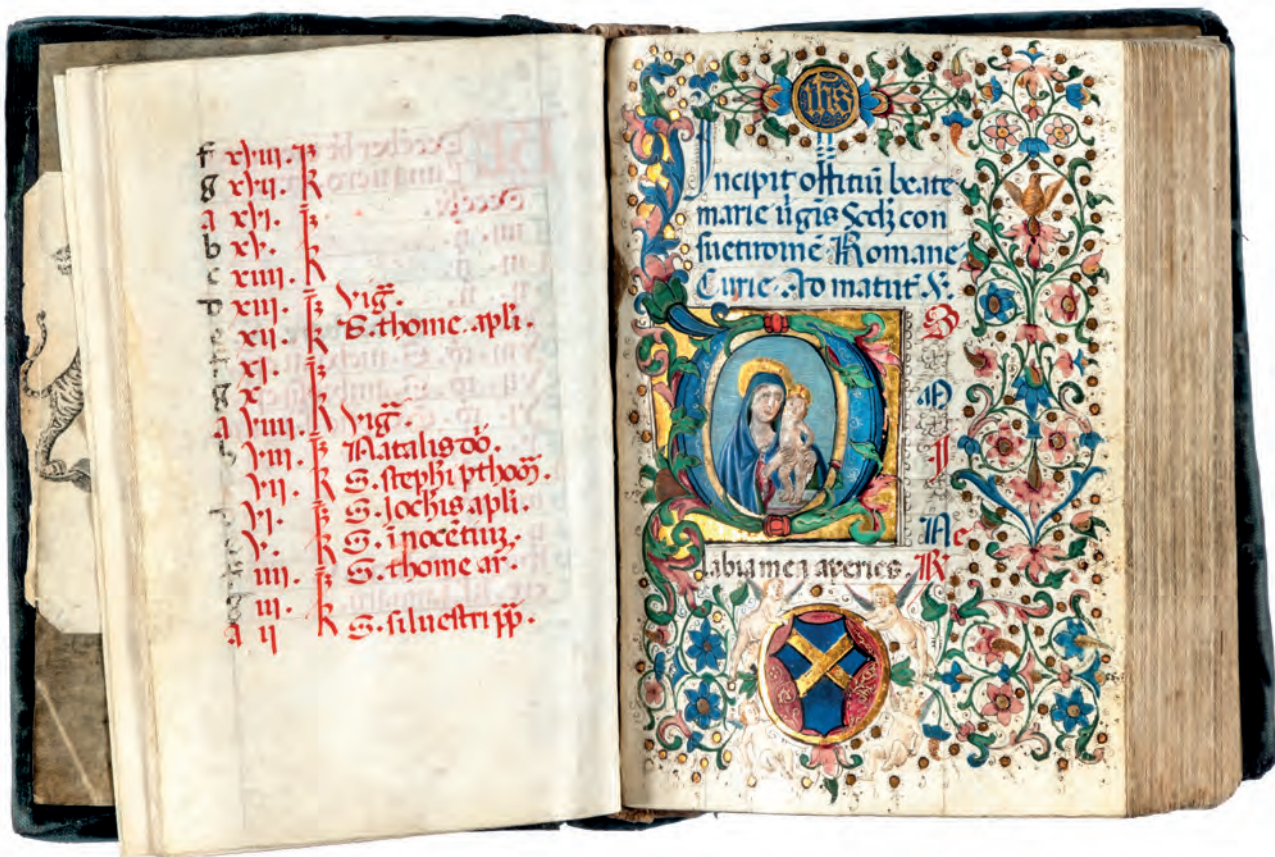 f xviii. k
g xvii. k
a xvi. k
b xv. k
c xiiii. k
D xiii. k vig̃.
e xii. k S. thome. apl̃i.
f xi. k
g x. k
a viiii. k vig̃.
b viii. k Natalis dõ.
vii. k S. steph̃i pthom̃.
vi. k S. Joh̃is apl̃i.
v. k S. ĩnocẽtuiʒ.
iiii. k S. thome ar.
b iii. k
a ii k S. siluestri pp̃.
yhs
Incipit offitiũ beate
marie ṽgis Scd̃ʒ con
suetixomẽ. Romane
Curie. Ad matut̃. v̄.
D
S
ap
I
Ne
labia mea aperies. R